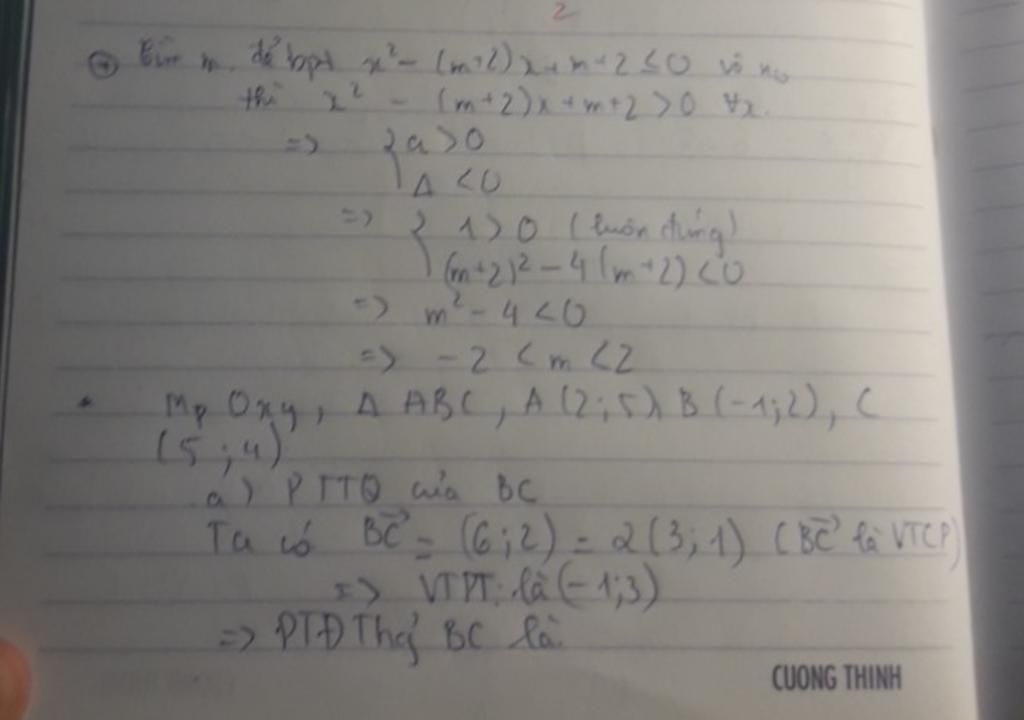 2
Tìm m để bpt x² - (m+2)x + m + 2 ≤ 0 vô no
thì x² - (m+2)x + m + 2 > 0 ∀x.
=> { a > 0
Δ < 0
=> { 1 > 0 (luôn đúng)
(m+2)² - 4(m+2) < 0
=> m² - 4 < 0
=> -2 < m < 2
* Mp Oxy, Δ ABC, A (2;5), B (-1;2), C
(5;4)
a) PTTQ của BC
Ta có BC→ = (6;2) = 2(3;1) (BC→ là VTCP)
=> VTPT: là (-1;3)
=> PTĐThg BC là
CUONG THINH